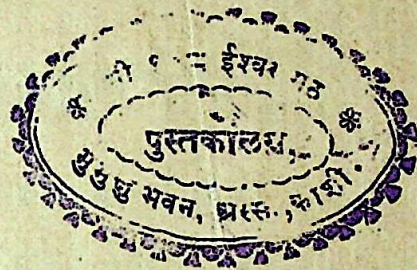 ईश्वर मठ
पुस्तकालय,
मुमुक्षु भवन, अस्सी, काशी.